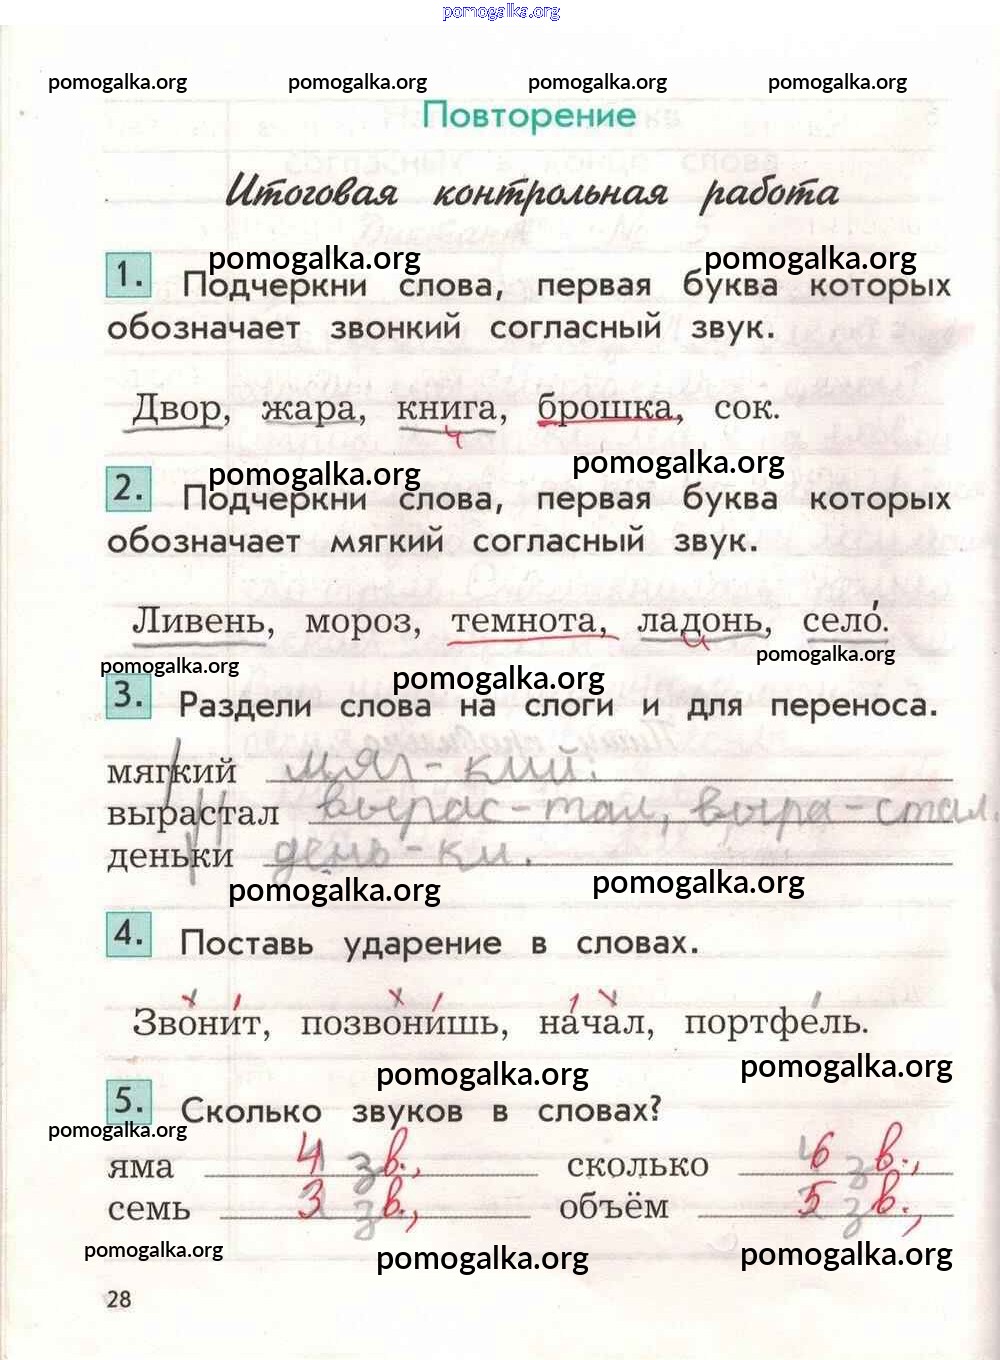 pomogalka.org
pomogalka.org pomogalka.org pomogalka.org pomogalka.org
Повторение
Итоговая контрольная работа
pomogalka.org pomogalka.org
1. Подчеркни слова, первая буква которых
обозначает звонкий согласный звук.
Двор, жара, книга, брошка, сок.
pomogalka.org pomogalka.org
2. Подчеркни слова, первая буква которых
обозначает мягкий согласный звук.
Ливень, мороз, темнота, ладонь, село́.
pomogalka.org pomogalka.org pomogalka.org
3. Раздели слова на слоги и для переноса.
мягкий мяг-кий.
вырастал вырас-тал, выра-стал.
деньки день-ки.
pomogalka.org pomogalka.org
4. Поставь ударение в словах.
Звони́т, позвони́шь, на́чал, портфе́ль.
pomogalka.org pomogalka.org
5. Сколько звуков в словах?
pomogalka.org
яма 4 зв., сколько 6 зв.,
семь 3 зв., объём 5 зв.,
pomogalka.org pomogalka.org pomogalka.org
28